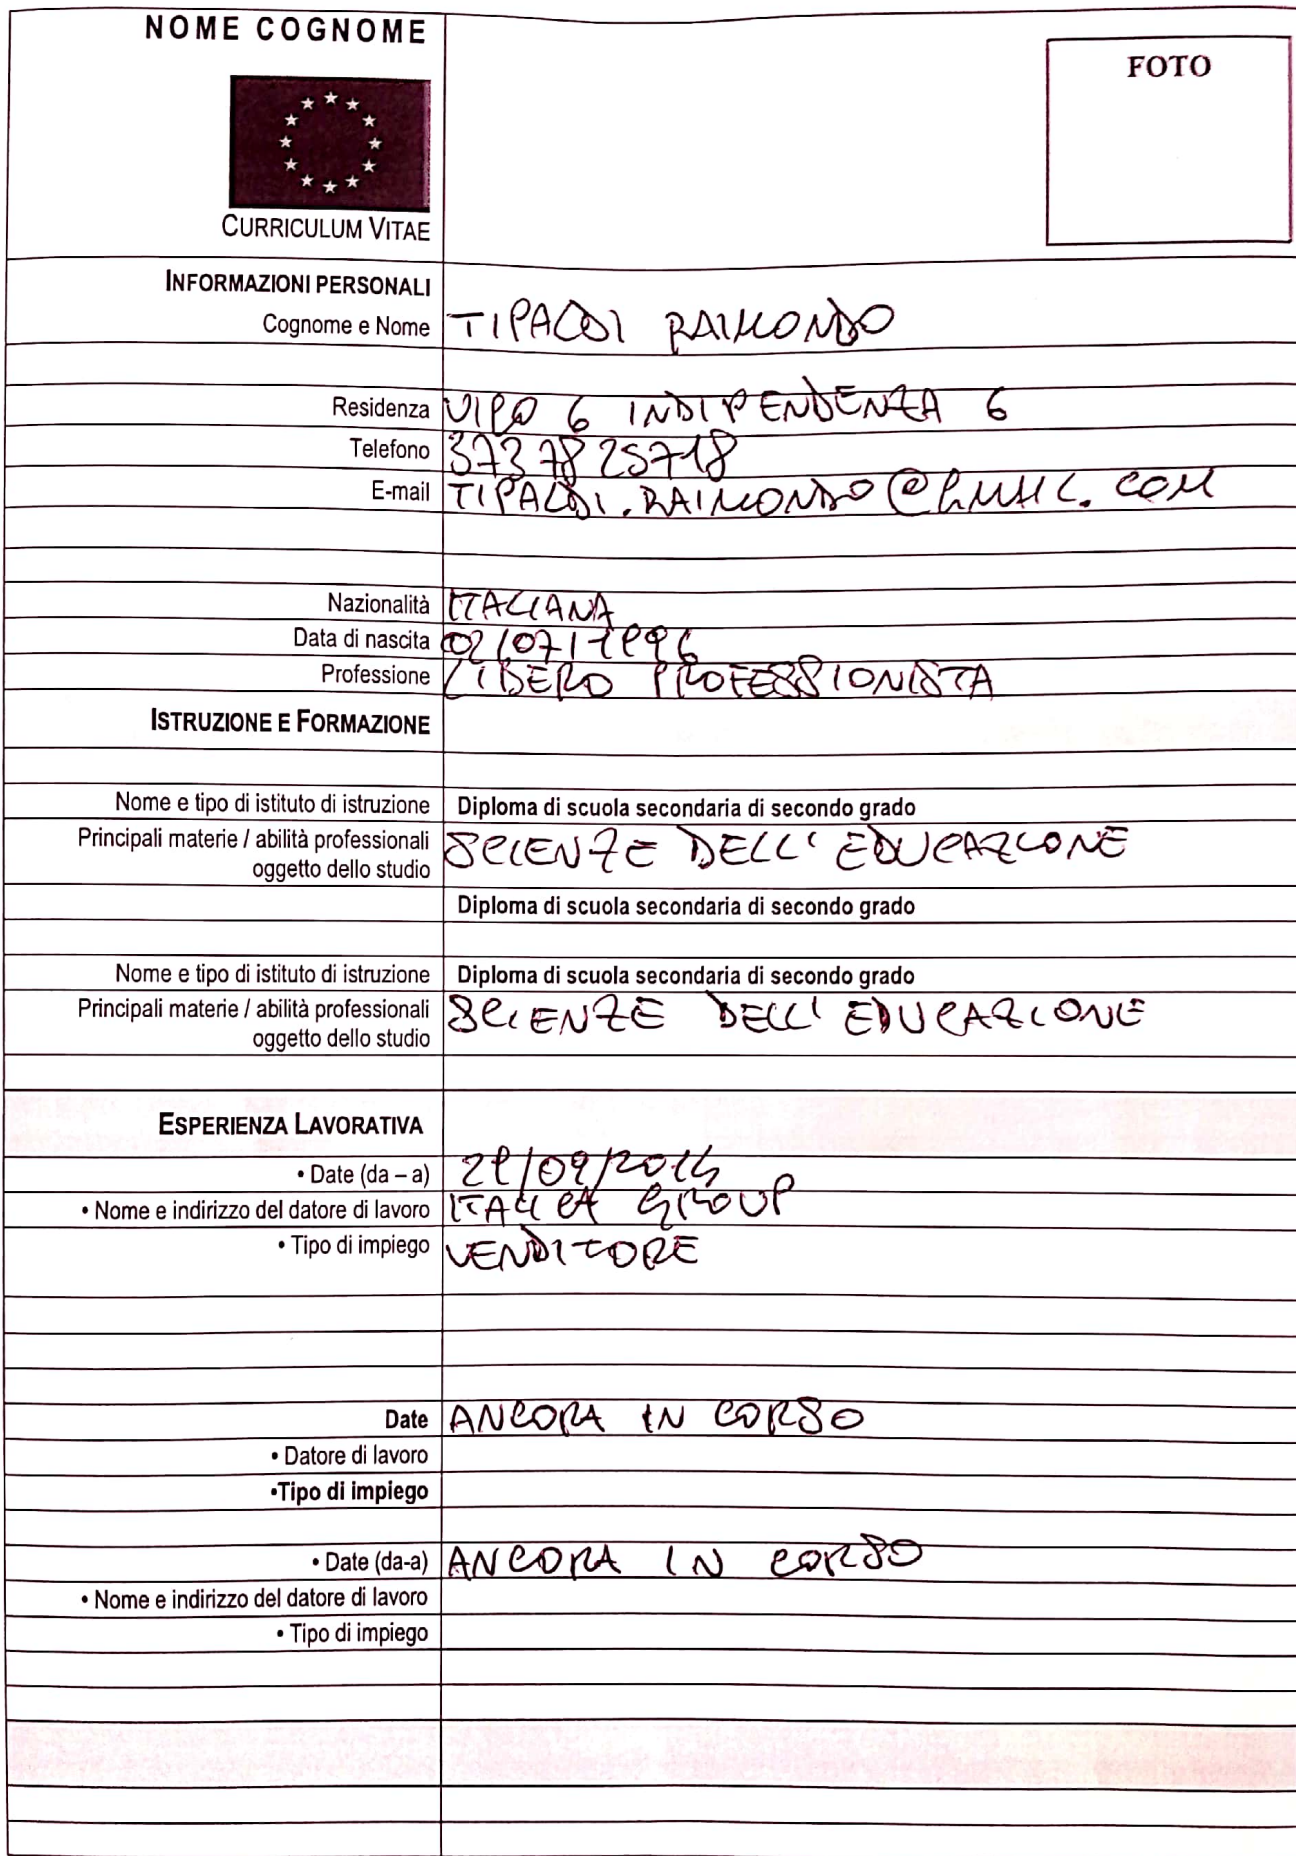 NOME COGNOME
FOTO
CURRICULUM VITAE
INFORMAZIONI PERSONALI
Cognome e Nome TIPALDI RAIMONDO
Residenza VICO 6 INDIPENDENZA 6
Telefono 3737825718
E-mail TIPALDI.RAIMONDO@GMAIL.COM
Nazionalità ITALIANA
Data di nascita 02/07/1996
Professione LIBERO PROFESSIONISTA
ISTRUZIONE E FORMAZIONE
Nome e tipo di istituto di istruzione Diploma di scuola secondaria di secondo grado
Principali materie / abilità professionali SCIENZE DELL'EDUCAZIONE
oggetto dello studio
Diploma di scuola secondaria di secondo grado
Nome e tipo di istituto di istruzione Diploma di scuola secondaria di secondo grado
Principali materie / abilità professionali SCIENZE DELL'EDUCAZIONE
oggetto dello studio
ESPERIENZA LAVORATIVA
• Date (da – a)
• Nome e indirizzo del datore di lavoro GROUP
• Tipo di impiego VENDITORE
Date ANCORA IN CORSO
• Datore di lavoro
•Tipo di impiego
• Date (da-a) ANCORA IN CORSO
• Nome e indirizzo del datore di lavoro
• Tipo di impiego